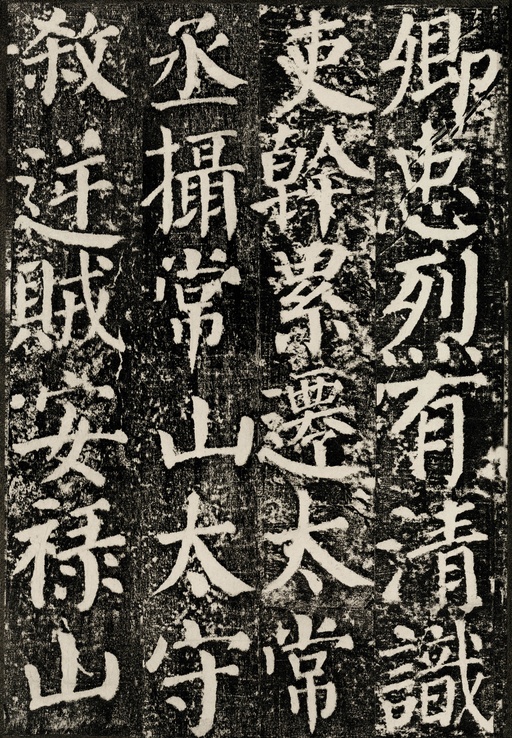 卿忠烈有清識
吏幹累遷太常
丞攝常山太守
殺逆賊安禄山